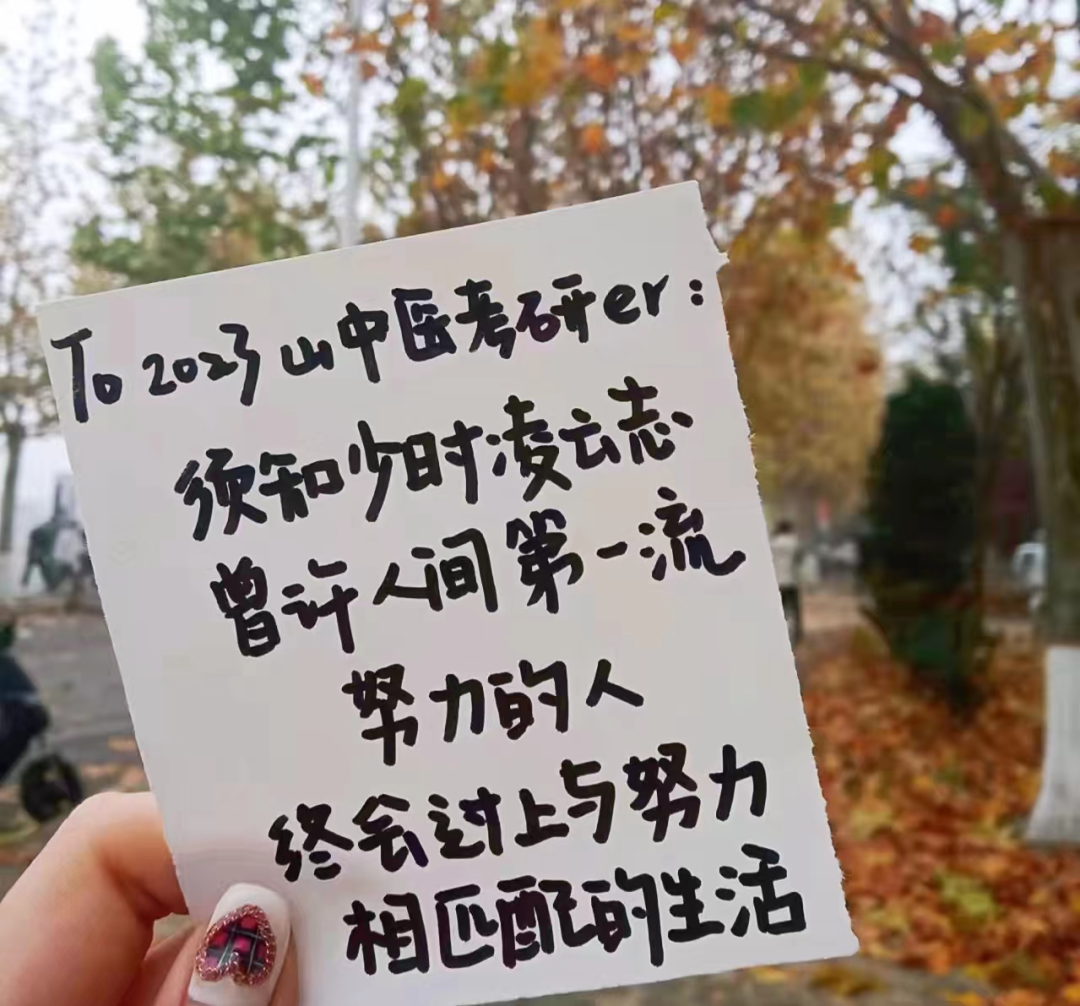 To 2023山中医考研er:
须知少时凌云志
曾许人间第一流
努力的人
终会过上与努力
相匹配的生活